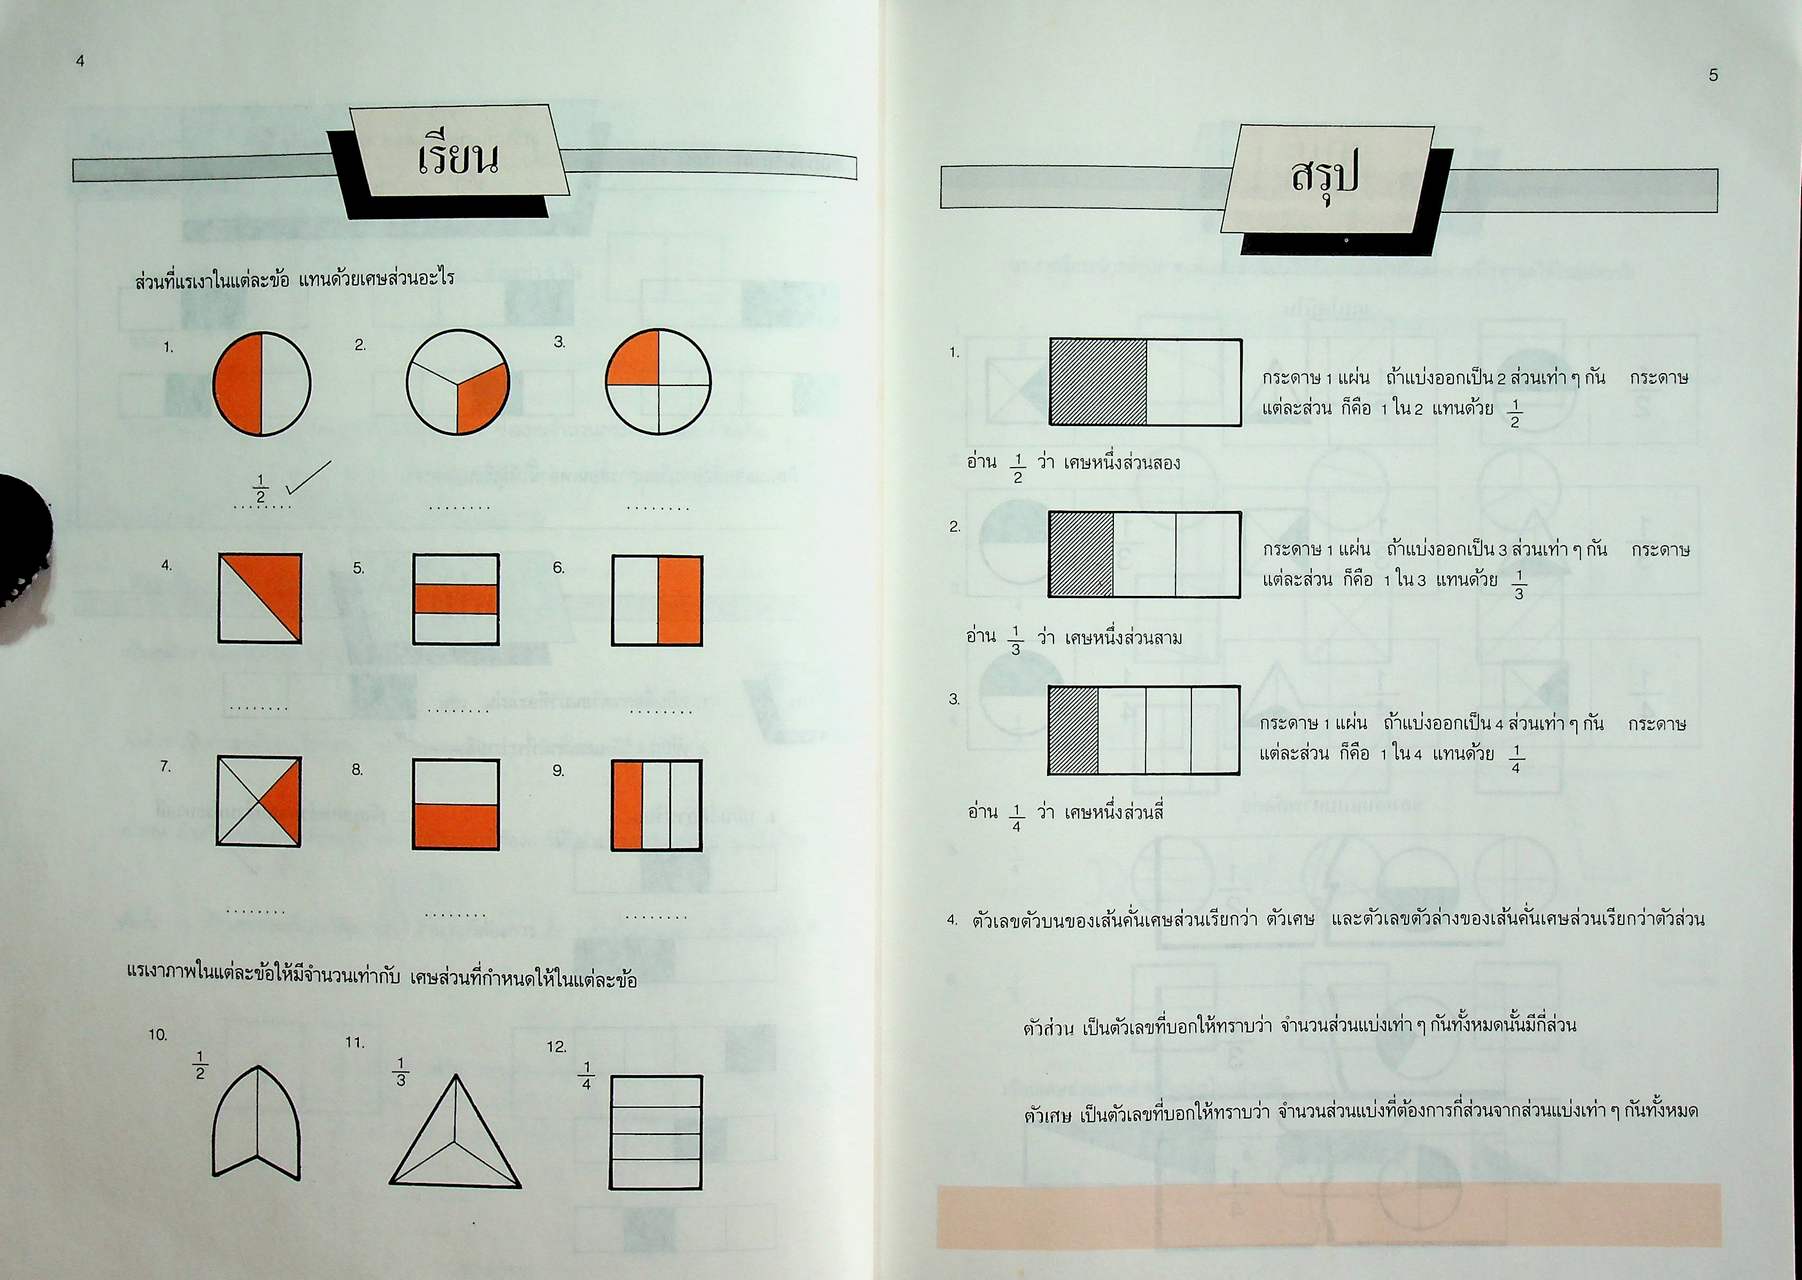 4
เรียน
ส่วนที่แรเงาในแต่ละข้อ แทนด้วยเศษส่วนอะไร
1. 2. 3.
1/2 ........ ........
4. 5. 6.
........ ........ ........
7. 8. 9.
........ ........ ........
แรเงาภาพในแต่ละข้อให้มีจำนวนเท่ากับ เศษส่วนที่กำหนดให้ในแต่ละข้อ
10. 1/2 11. 1/3 12. 1/4
5
สรุป
1. กระดาษ 1 แผ่น ถ้าแบ่งออกเป็น 2 ส่วนเท่า ๆ กัน กระดาษ
แต่ละส่วน ก็คือ 1 ใน 2 แทนด้วย 1/2
อ่าน 1/2 ว่า เศษหนึ่งส่วนสอง
2. กระดาษ 1 แผ่น ถ้าแบ่งออกเป็น 3 ส่วนเท่า ๆ กัน กระดาษ
แต่ละส่วน ก็คือ 1 ใน 3 แทนด้วย 1/3
อ่าน 1/3 ว่า เศษหนึ่งส่วนสาม
3. กระดาษ 1 แผ่น ถ้าแบ่งออกเป็น 4 ส่วนเท่า ๆ กัน กระดาษ
แต่ละส่วน ก็คือ 1 ใน 4 แทนด้วย 1/4
อ่าน 1/4 ว่า เศษหนึ่งส่วนสี่
4. ตัวเลขตัวบนของเส้นคั่นเศษส่วนเรียกว่า ตัวเศษ และตัวเลขตัวล่างของเส้นคั่นเศษส่วนเรียกว่าตัวส่วน
ตัวส่วน เป็นตัวเลขที่บอกให้ทราบว่า จำนวนส่วนแบ่งเท่า ๆ กันทั้งหมดนั้นมีกี่ส่วน
ตัวเศษ เป็นตัวเลขที่บอกให้ทราบว่า จำนวนส่วนแบ่งที่ต้องการกี่ส่วนจากส่วนแบ่งเท่า ๆ กันทั้งหมด